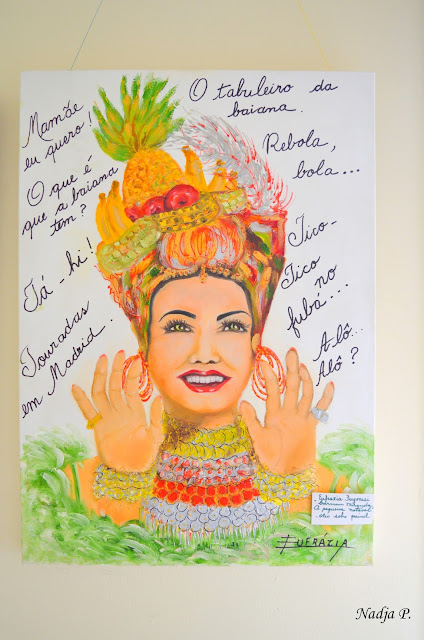 Mamãe
eu quero!
O que é
que a baiana
tem?
Tá-hi!
Touradas
em Madrid.
O tabuleiro da
baiana.
Rebola,
bola...
Tico-
Tico
no
fubá...
A-lô...
Alô?
Miranda
A pequena notável
óleo sobre painel
EUFRÁZIA
Nadja P.